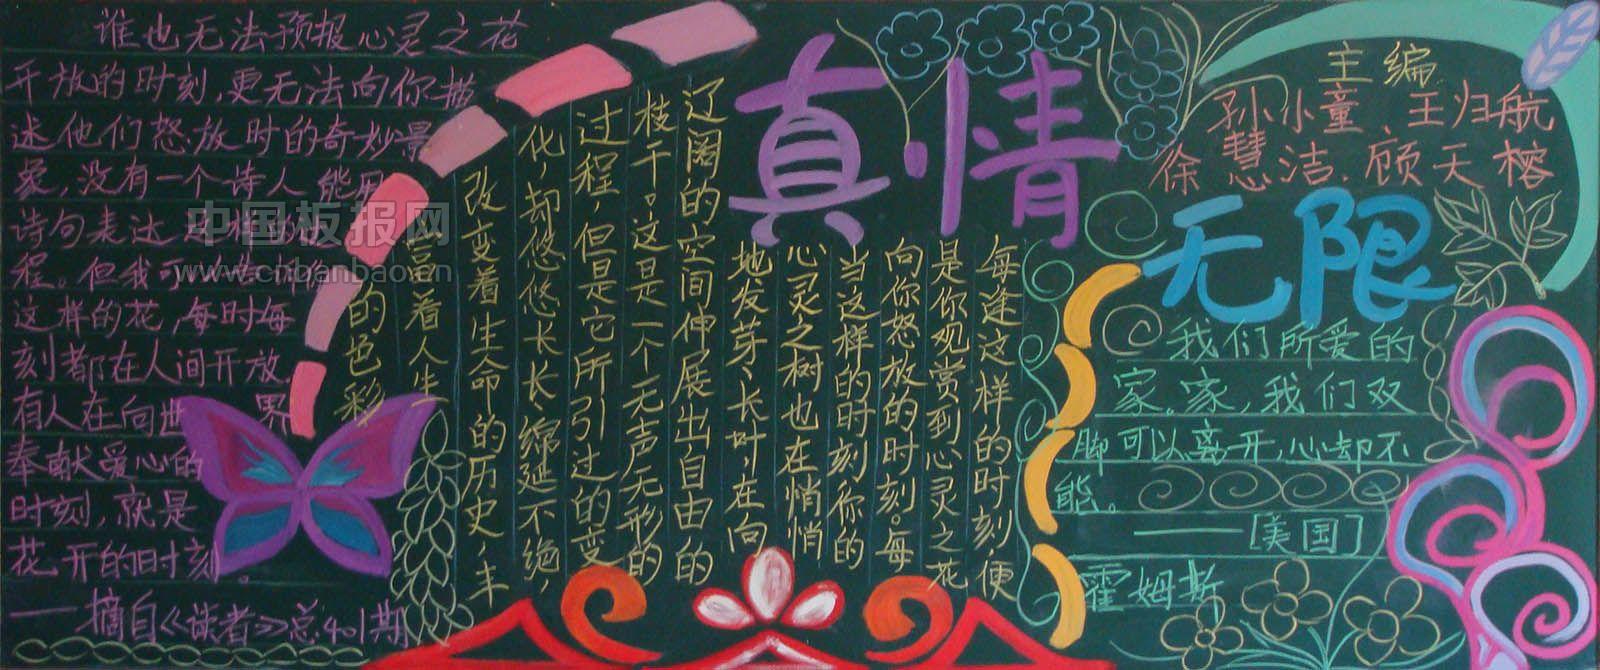 谁也无法预报心灵之花
开放的时刻,更无法向你描
述他们怒放时的奇妙景
象,没有一个诗人能用
诗句表达
程。但我可以告诉你
这样的花,每时每
刻都在人间开放。
有人在向世界
奉献爱心的
时刻,就是
花开的时刻。
——摘自《读者》总401期
中国板报网
www.cnbanbao.cn
真情
无限
每逢这样的时刻,便
是你观赏到心灵之花
向你怒放的时刻。每
当这样的时刻你的
心灵之树也在悄悄
地发芽、长叶,在向
辽阔的空间伸展出自由的
枝干。这是一个无声无形的
过程,但是它所引过的变
化,却悠悠长长,绵延不绝,
改变着生命的历史,丰
富着人生
的色彩。
主编
孙小童、王归航
徐慧洁、顾天榕
我们所爱的
家。家,我们双
脚可以离开,心却不
能。
——[美国]
霍姆斯